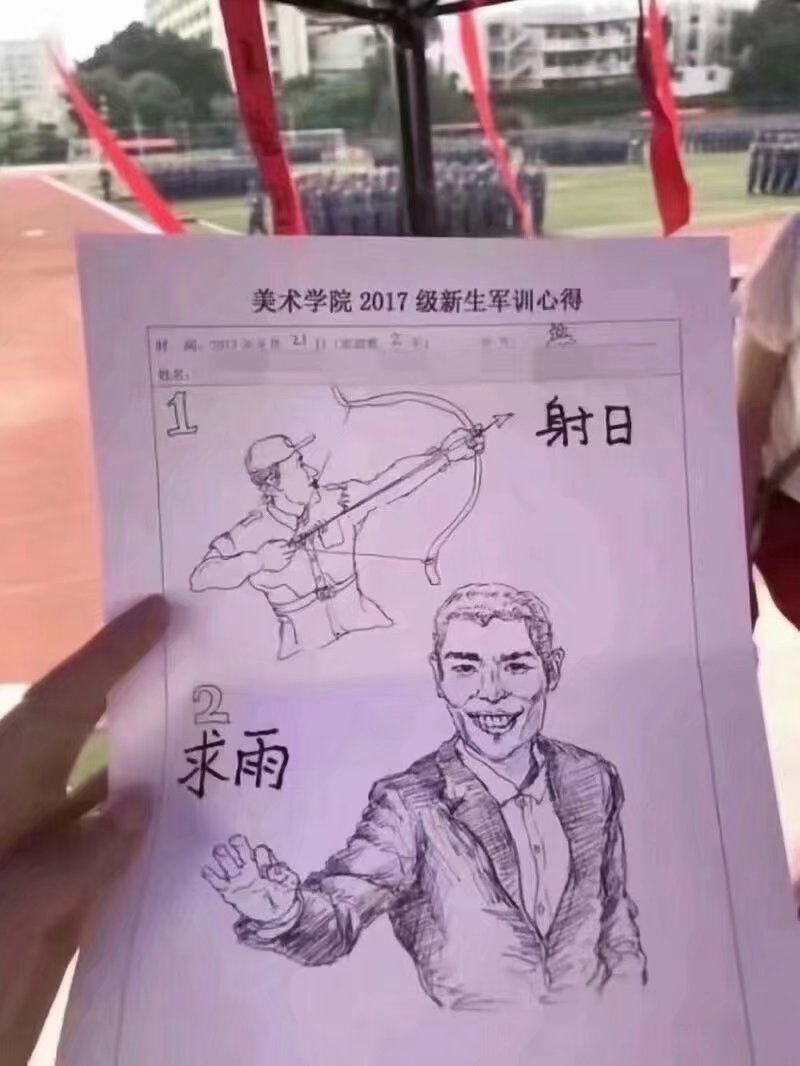 美术学院 2017 级新生军训心得
时 间：2017 年 9 月 21 日
姓名：
1
射日
2
求雨